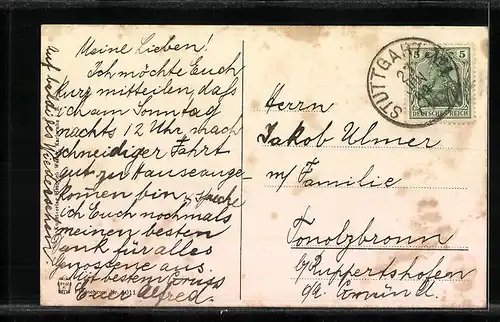 Meine Lieben!
Ich möchte Euch
kurz mitteilen, daß
ich am Sonntag
nachts 12 Uhr, nach
schneidiger Fahrt
gut zu Hause ange-
komen bin, spreche
ich Euch nochmals
meinen besten
Dank für alles
genossene aus.
Mit bestem Gruss
Euer Alfred.
Auf baldiges Wiedersehen!
Herrn
Jakob Ulmer
m/ Familie
Tonolzbronn
b/Ruppertshofen
O/A. Gmünd.
STUTTGART
5 5
DEUTSCHES REICH